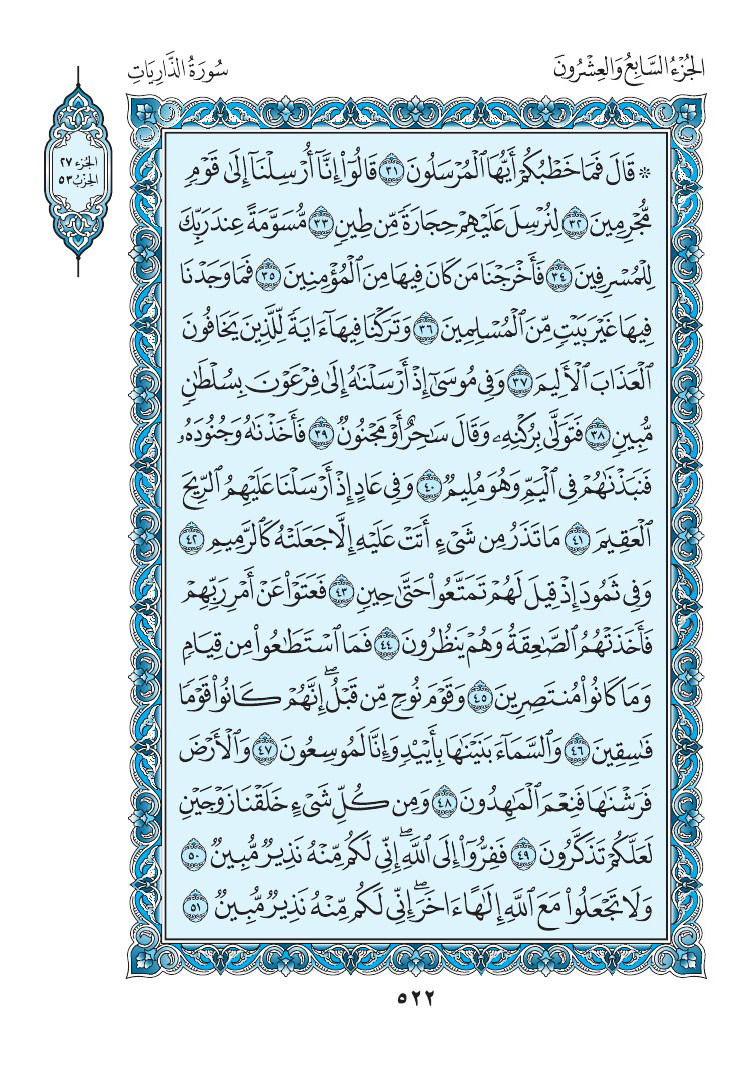 الجُزْءُ السَّابِعُ وَالعِشْرُونَ
سُورَةُ الذَّارِيَات
الجزء ٢٧
الحزب ٥٣
۞ قَالَ فَمَا خَطْبُكُمْ أَيُّهَا ٱلْمُرْسَلُونَ ٣١ قَالُوٓاْ إِنَّآ أُرْسِلْنَآ إِلَىٰ قَوْمٖ
مُّجْرِمِينَ ٣٢ لِنُرْسِلَ عَلَيْهِمْ حِجَارَةٗ مِّن طِينٖ ٣٣ مُّسَوَّمَةً عِندَ رَبِّكَ
لِلْمُسْرِفِينَ ٣٤ فَأَخْرَجْنَا مَن كَانَ فِيهَا مِنَ ٱلْمُؤْمِنِينَ ٣٥ فَمَا وَجَدْنَا
فِيهَا غَيْرَ بَيْتٖ مِّنَ ٱلْمُسْلِمِينَ ٣٦ وَتَرَكْنَا فِيهَآ ءَايَةٗ لِّلَّذِينَ يَخَافُونَ
ٱلْعَذَابَ ٱلْأَلِيمَ ٣٧ وَفِي مُوسَىٰٓ إِذْ أَرْسَلْنَٰهُ إِلَىٰ فِرْعَوْنَ بِسُلْطَٰنٖ
مُّبِينٖ ٣٨ فَتَوَلَّىٰ بِرُكْنِهِۦ وَقَالَ سَٰحِرٌ أَوْ مَجْنُونٞ ٣٩ فَأَخَذْنَٰهُ وَجُنُودَهُۥ
فَنَبَذْنَٰهُمْ فِي ٱلْيَمِّ وَهُوَ مُلِيمٞ ٤٠ وَفِي عَادٍ إِذْ أَرْسَلْنَا عَلَيْهِمُ ٱلرِّيحَ
ٱلْعَقِيمَ ٤١ مَا تَذَرُ مِن شَيْءٍ أَتَتْ عَلَيْهِ إِلَّا جَعَلَتْهُ كَٱلرَّمِيمِ ٤٢
وَفِي ثَمُودَ إِذْ قِيلَ لَهُمْ تَمَتَّعُواْ حَتَّىٰ حِينٖ ٤٣ فَعَتَوْاْ عَنْ أَمْرِ رَبِّهِمْ
فَأَخَذَتْهُمُ ٱلصَّٰعِقَةُ وَهُمْ يَنظُرُونَ ٤٤ فَمَا ٱسْتَطَٰعُواْ مِن قِيَامٖ
وَمَا كَانُواْ مُنتَصِرِينَ ٤٥ وَقَوْمَ نُوحٖ مِّن قَبْلُۖ إِنَّهُمْ كَانُواْ قَوْمٗا
فَٰسِقِينَ ٤٦ وَٱلسَّمَآءَ بَنَيْنَٰهَا بِأَيْيْدٖ وَإِنَّا لَمُوسِعُونَ ٤٧ وَٱلْأَرْضَ
فَرَشْنَٰهَا فَنِعْمَ ٱلْمَٰهِدُونَ ٤٨ وَمِن كُلِّ شَيْءٍ خَلَقْنَا زَوْجَيْنِ
لَعَلَّكُمْ تَذَكَّرُونَ ٤٩ فَفِرُّوٓاْ إِلَى ٱللَّهِۖ إِنِّي لَكُم مِّنْهُ نَذِيرٞ مُّبِينٞ ٥٠
وَلَا تَجْعَلُواْ مَعَ ٱللَّهِ إِلَٰهًا ءَاخَرَۖ إِنِّي لَكُم مِّنْهُ نَذِيرٞ مُّبِينٞ ٥١
٥٢٢